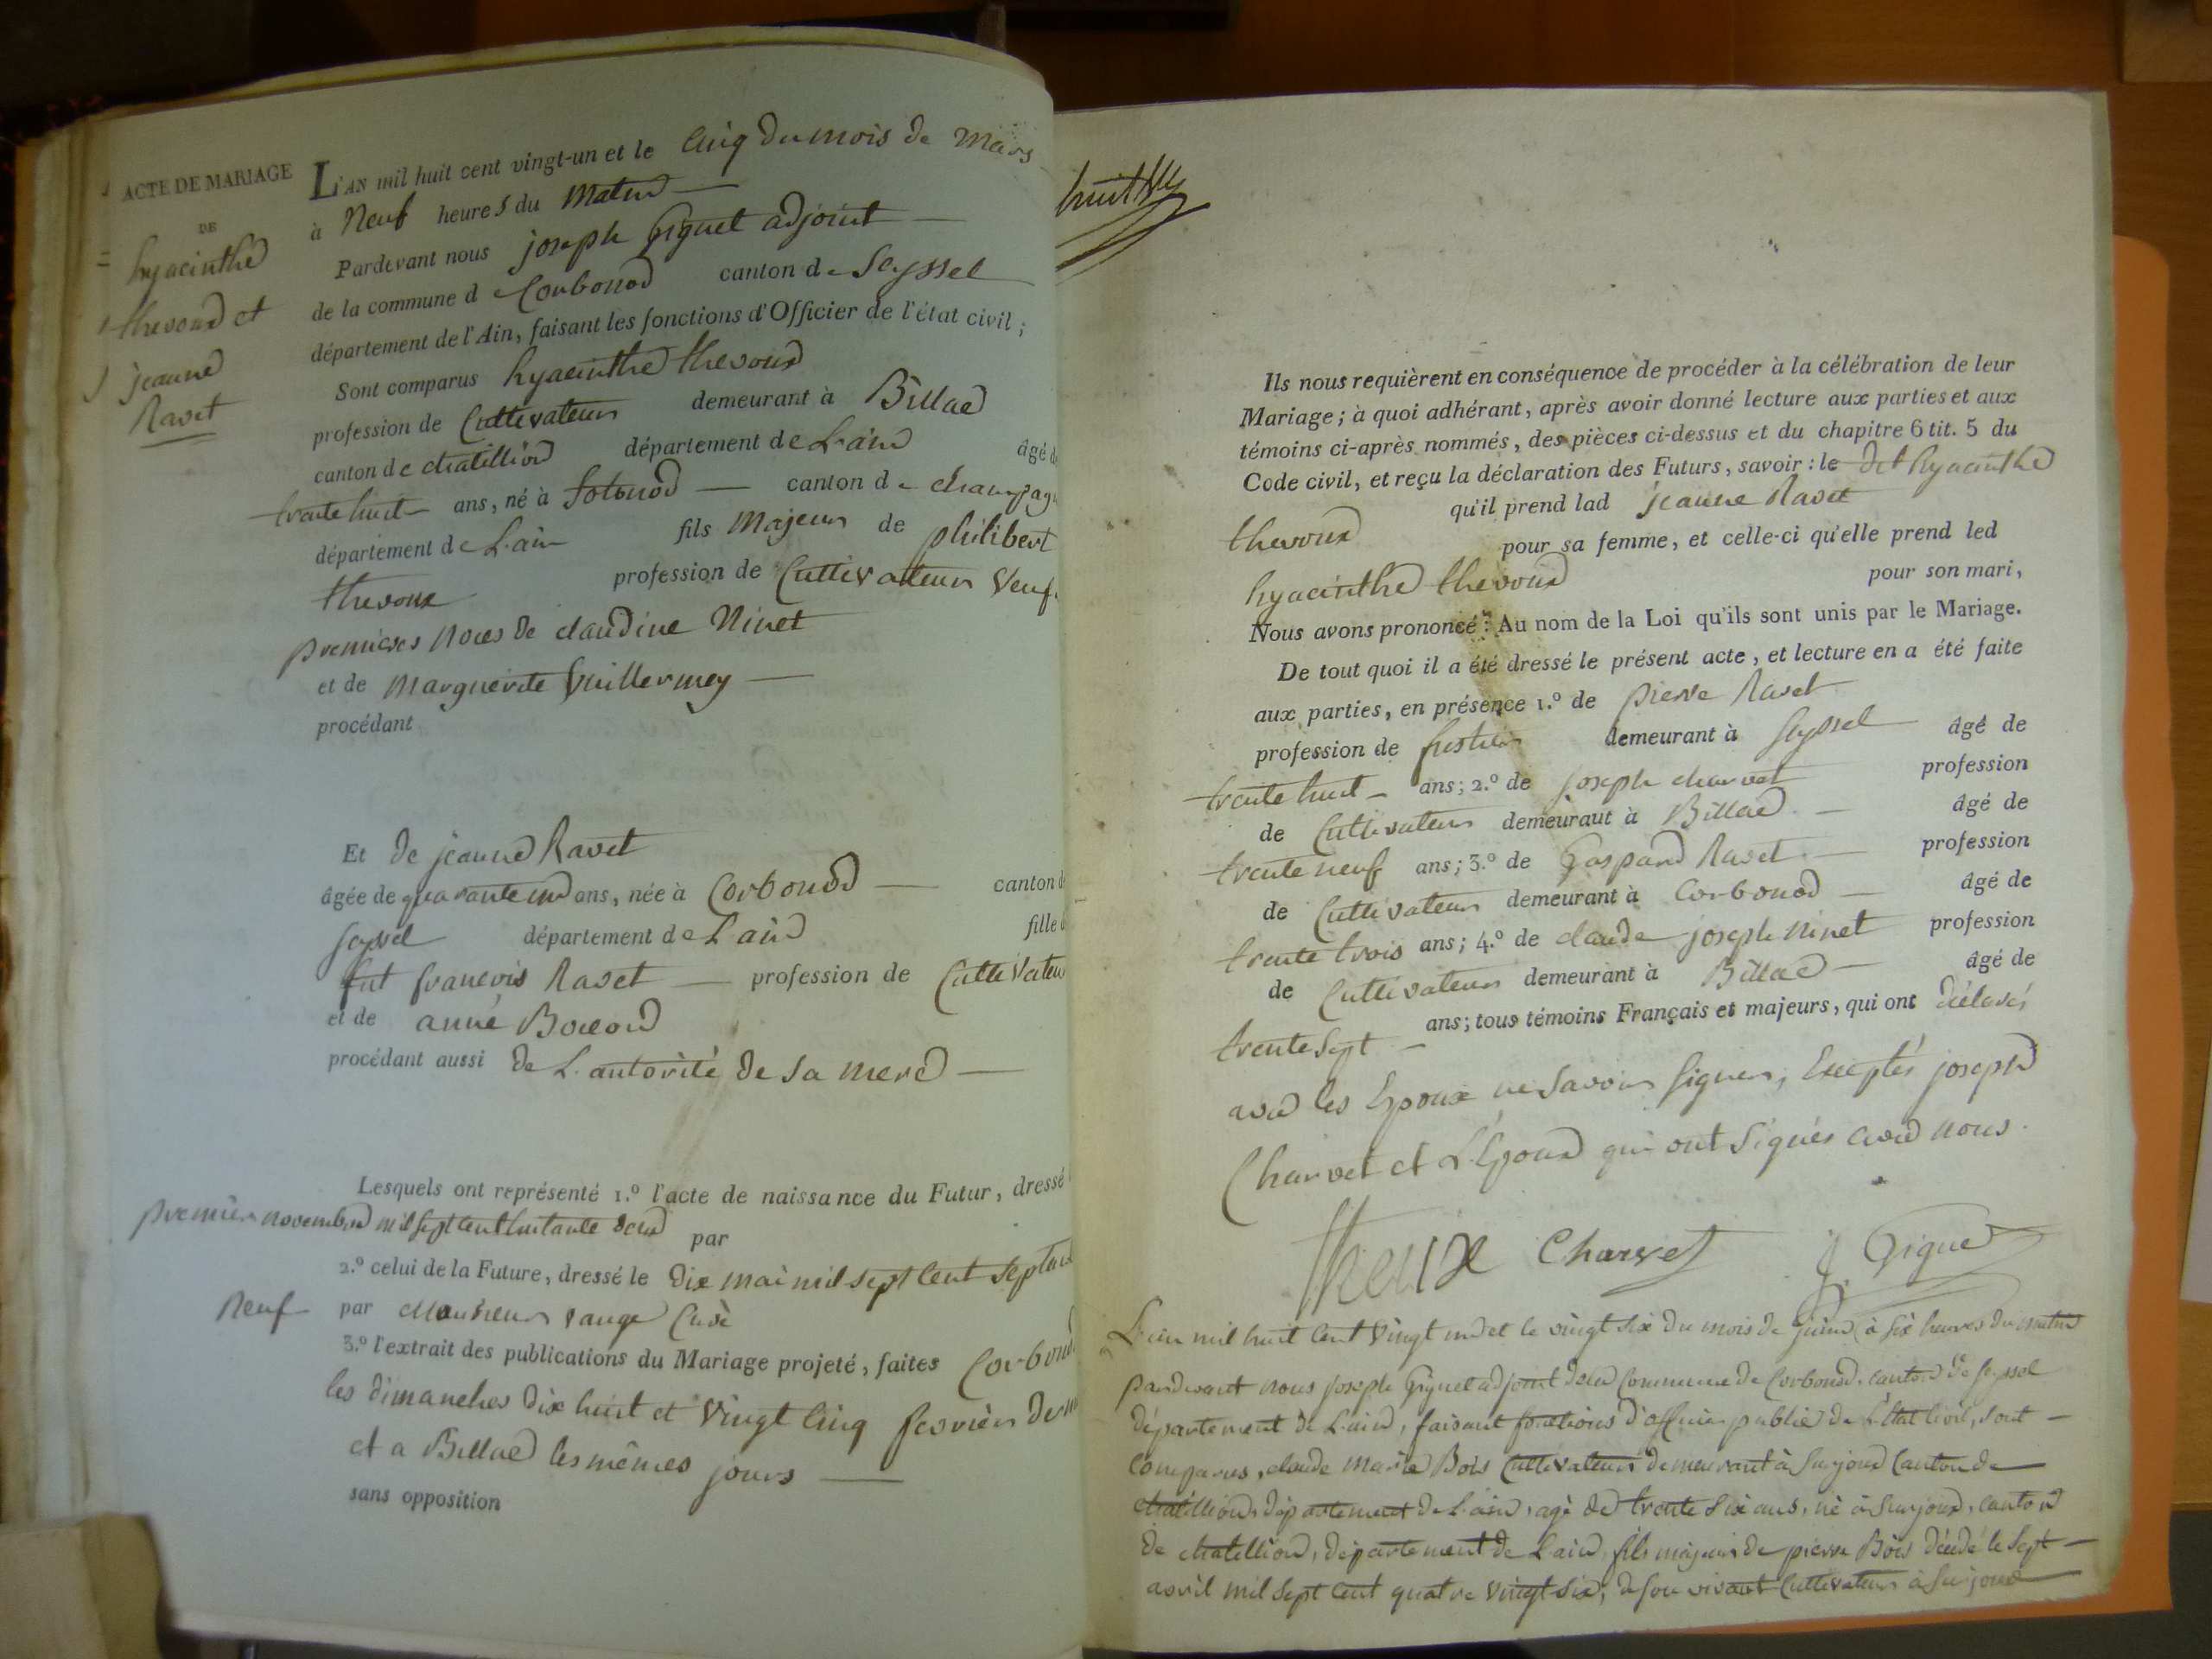 ACTE DE MARIAGE
DE
hyacinthe
thevoux et
jeanne
Ravet
L'AN mil huit cent vingt-un et le cinq du mois de mars
à Neuf heures du matin
Pardevant nous joseph Giguet adjoint
de la commune de Corbonod canton de Seyssel
département de l'Ain, faisant les fonctions d'Officier de l'état civil;
Sont comparus hyacinthe thevoux
profession de Cultivateur demeurant à Billiad
canton de chatillion département de L'ain âgé de
trente huit ans, né à sotonod canton de champagn
département de L'ain fils Majeur de philibert
thevoux profession de Cultivateur Veuf
premieres noces de claudine Ninet
et de Marguerite Vuillermey
procédant
Et de jeanne Ravet
âgée de quarante un ans, née à Corbonod canton de
Seyssel département de L'ain fille
fut françois Ravet profession de Cultivateur
et de anne Bocond
procédant aussi de L'autorité de sa mere
Lesquels ont représenté 1.º l'acte de naissance du Futur, dressé
premier novembre mil sept cent huitante deux par
2.º celui de la Future, dressé le Dix mai mil sept cent septante
Neuf par Monsieur Curé
3.º l'extrait des publications du Mariage projeté, faites Corbonod
les dimanches Dix huit et vingt cinq fevrier
et a Billiad les mêmes jours
sans opposition
huit
Ils nous requièrent en conséquence de procéder à la célébration de leur
Mariage; à quoi adhérant, après avoir donné lecture aux parties et aux
témoins ci-après nommés, des pièces ci-dessus et du chapitre 6 tit. 5 du
Code civil, et reçu la déclaration des Futurs, savoir: le dit hyacinthe
thevoux qu'il prend lad jeanne Ravet
pour sa femme, et celle-ci qu'elle prend led
hyacinthe thevoux pour son mari,
Nous avons prononcé: Au nom de la Loi qu'ils sont unis par le Mariage.
De tout quoi il a été dressé le présent acte, et lecture en a été faite
aux parties, en présence 1.º de pierre Ravet
profession de demeurant à Seyssel âgé de
trente huit ans; 2.º de joseph charvet profession
de Cultivateur demeuraut à Billiad âgé de
trente neuf ans; 3.º de Gaspard Ravet profession
de Cultivateur demeurant à Corbonod âgé de
trente trois ans; 4.º de claude joseph Ninet profession
de Cultivateur demeurant à Billiad âgé de
trente sept ans; tous témoins Français et majeurs, qui ont déclarés
avec les Epoux ne savoir signer, Exceptés joseph
Charvet et L'Epoux qui ont signés avec nous.
Charvet J. Giguet
L'an mil huit cent vingt un et le vingt six du mois de juin à six heures du matin
pardevant nous joseph Giguet adjoint de la Commune de Corbonod, canton de Seyssel
département de L'ain, faisant fonctions d'officier public de L'état civil, sont
comparus, claude marie Bois Cultivateur demeurant à Surjoux Canton de
chatillion, département de L'ain, agé de trente six ans, né à Surjoux, canton
de chatillion, département de L'ain, fils majeur de pierre Bois décédé le sept
avril mil sept cent quatre vingt six, de son vivant Cultivateur à Surjoux